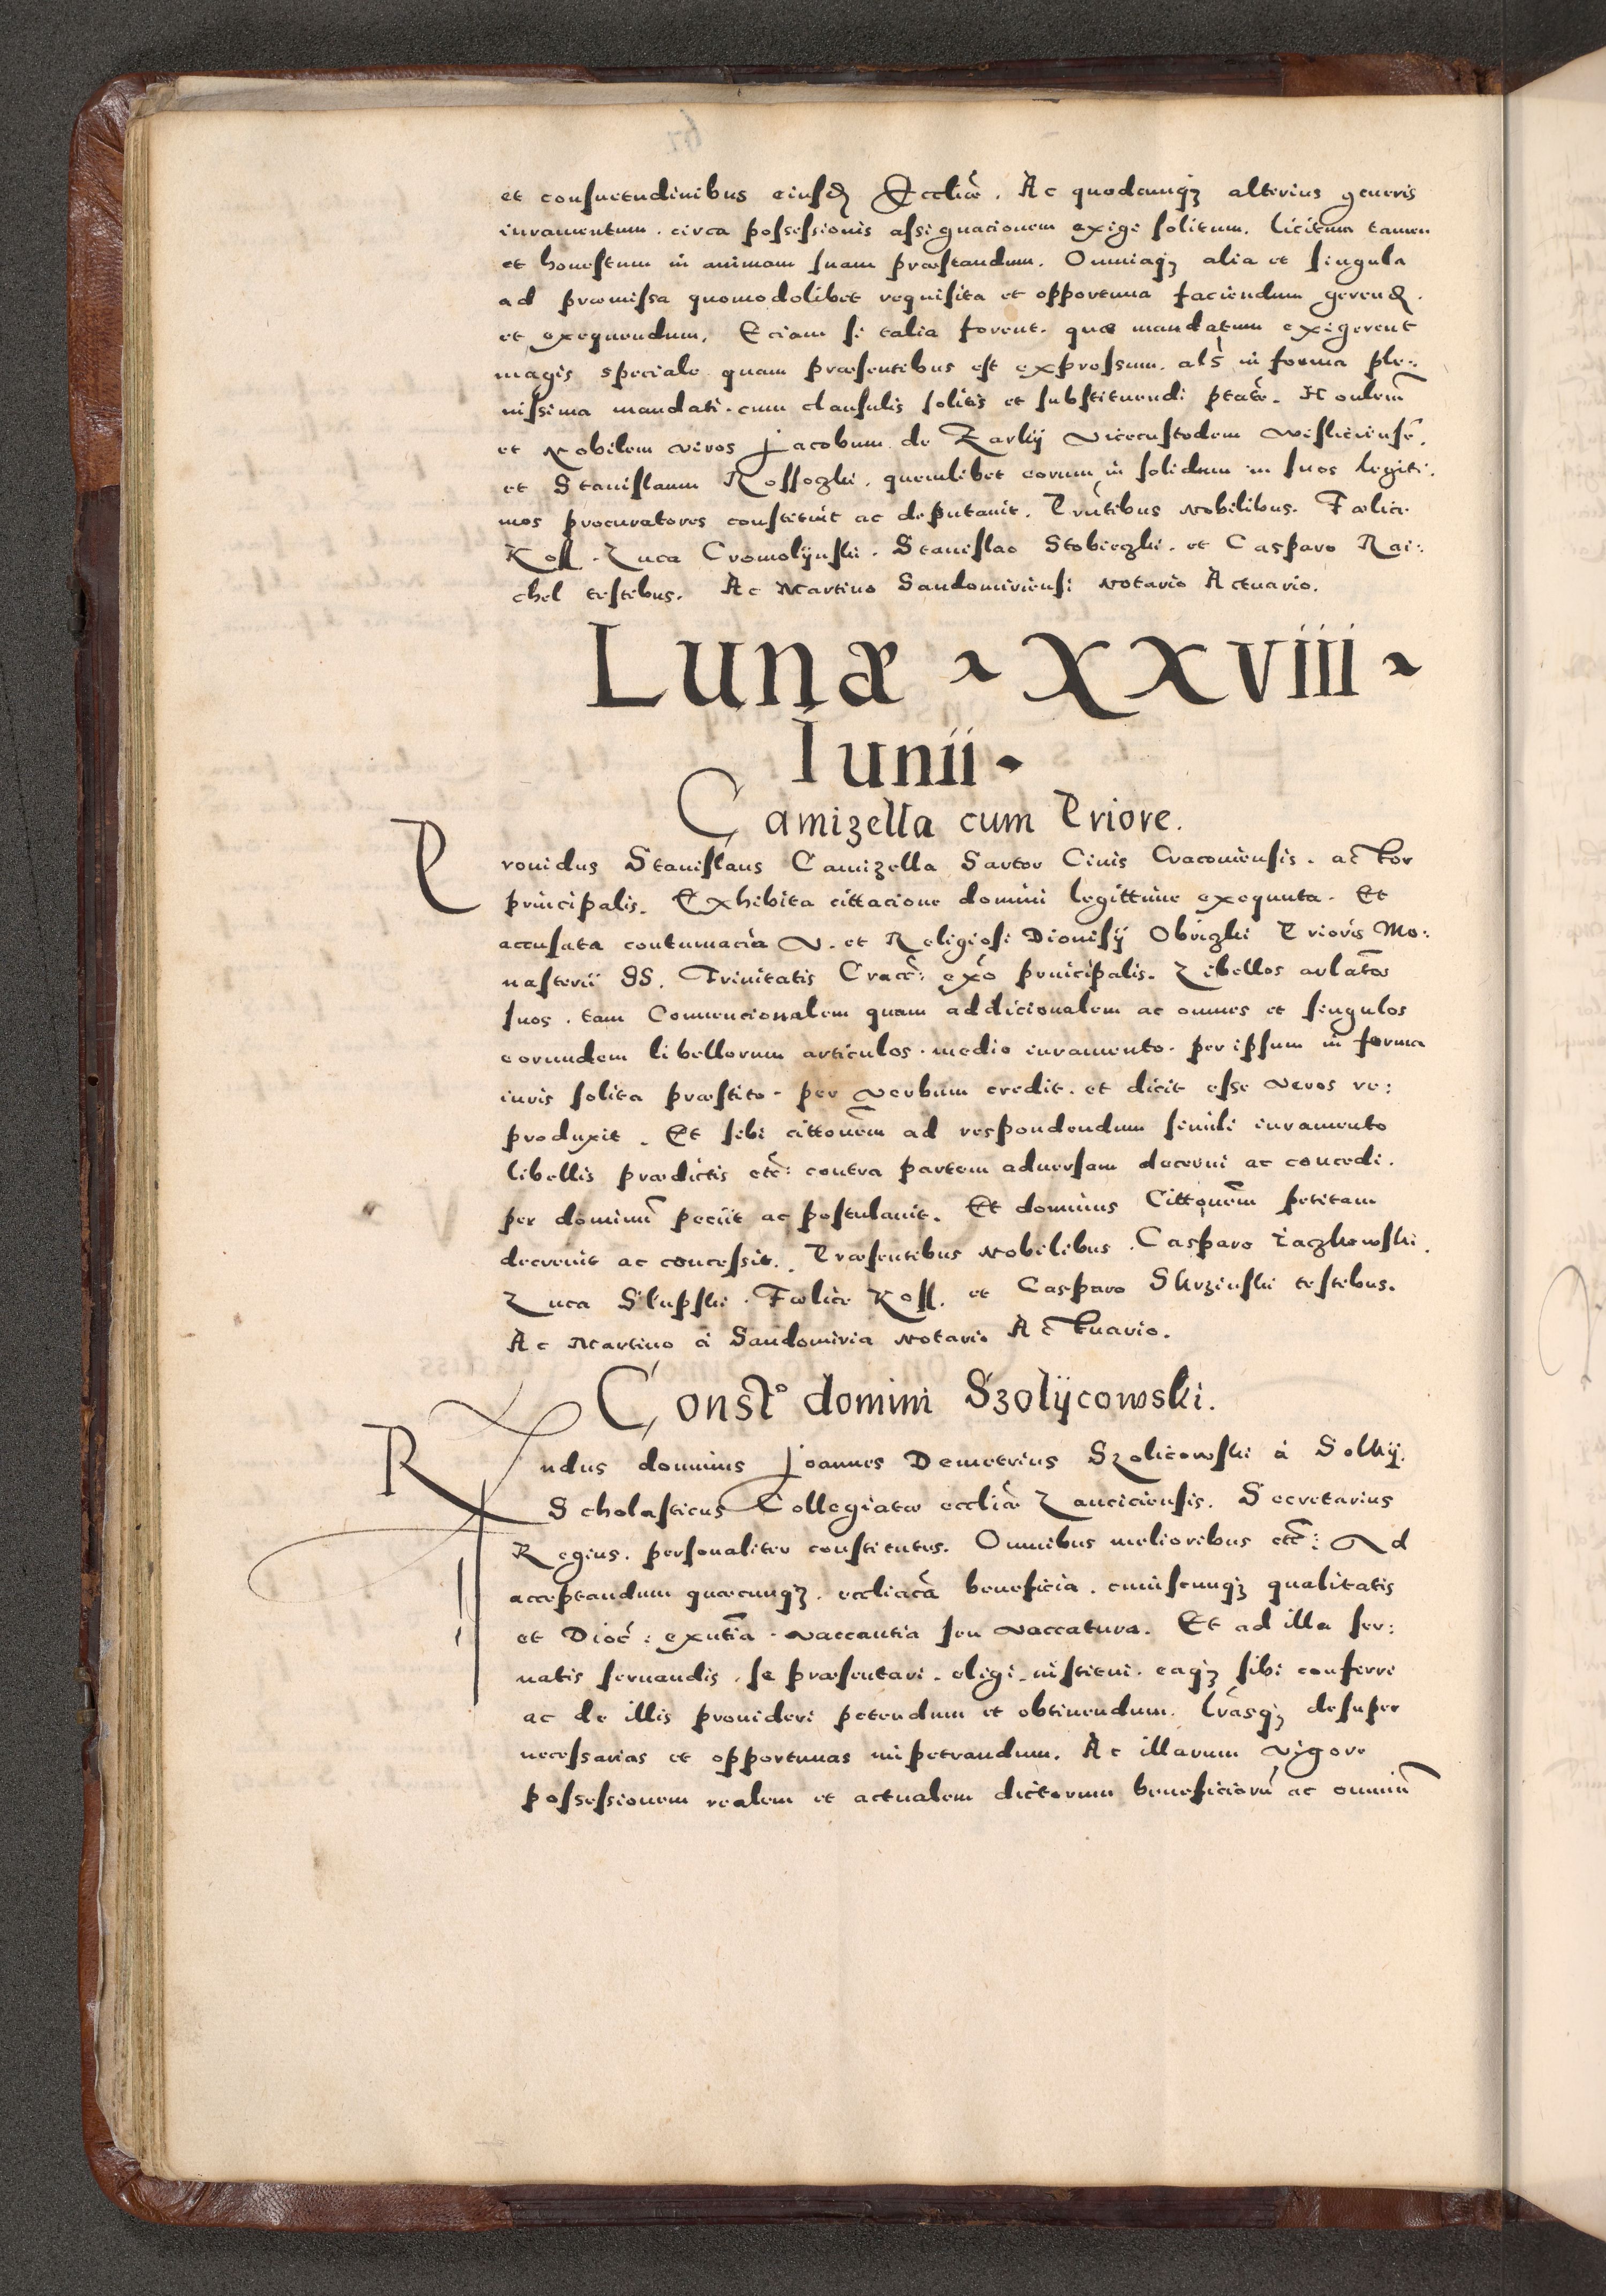 et consuetudinibus eiusd Eccliæ. Ac quodcunqꝫ alterius generis
iuramentum. circa possessionis assignacionem exigi solitum. licitum tamen
et honestum in animam suam præstandum. Omniaqꝫ alia et singula
ad præmissa quomodolibet requisita et opportuna faciendum gerend.
et exequendum, Eciam si talia forent. quæ mandatum exigerent
magis speciale quam præsentibus est expressum. als in forma ple:
nissima mandati. cum clausulis solitis et substituendi ptate. Honlem
et Nobilem viros Jacobum de Zarkÿ Vicecustodem Wisliciense.
et Stanislaum Rossoczki. quemlibet eorum in solidum in suos legiti:
mos procuratores constituit ac deputauit. Pntibus Nobilibus. Fælice
Koss. Luca Cromolÿnski. Stanislao Stobieczki. et Casparo Rai:
chel testibus. Ac Martino Sandomiriensi Notario Actuario.
Lunæ ~ XXVIII ~
Iunii ~
Camizella cum Priore.
Prouidus Stanislaus Camizella Sartor Ciuis Cracouiensis. actor
principalis. Exhibita cittacione domini legittime exequuta. Et
accusata contumacia V. et Religiosi Dionisÿ Obrizki Prioris Mo:
nasterii SS. Trinitatis Crace: exo principalis. Libellos arlatos
suos. tam Conuencionalem quam addicionalem ac omnes et singulos
eorundem libellorum articulos. medio iuramento. per ipsum in forma
iuris solita præstito. per verbum credit. et dicit esse veros re:
produxit. Et sibi cittonem ad respondendum simili iuramento
libellis prædictis etc: contra partem aduersam decerni ac concedi.
per dominu peciit ac postulauit. Et dominus Cittonem petitam
decreuit ac concessit. Præsentibus Nobilibus. Casparo Iaczkowski.
Luca Slupski. Fælice Koss. et Casparo Skrzinski testibus.
Ac Martino à Sandomiria Notario Actuario.
Constº domini Szolÿcowski.
Rndus dominus Joannes Demetrius Szolicowski à Solkÿ.
Scholasticus Collegiatæ eccliæ Lanciciensis. Secretarius
Regius. personaliter constitutus. Omnibus melioribus etc: Ad
acceptandum quæcunqꝫ. eccliaca beneficia. cuiuscunqꝫ qualitatis
et Dioc: exntia. vaccantia seu vaccatura. Et ad illa ser:
uatis seruandis. se præsentari. eligi. institui. eaqꝫ sibi conferri
ac de illis prouideri petendum et obtinendum. lrasqꝫ desuper
necessarias et opportunas impetrandum. Ac illarum vigore
possessionem realem et actualem dictorum beneficioru ac omniu